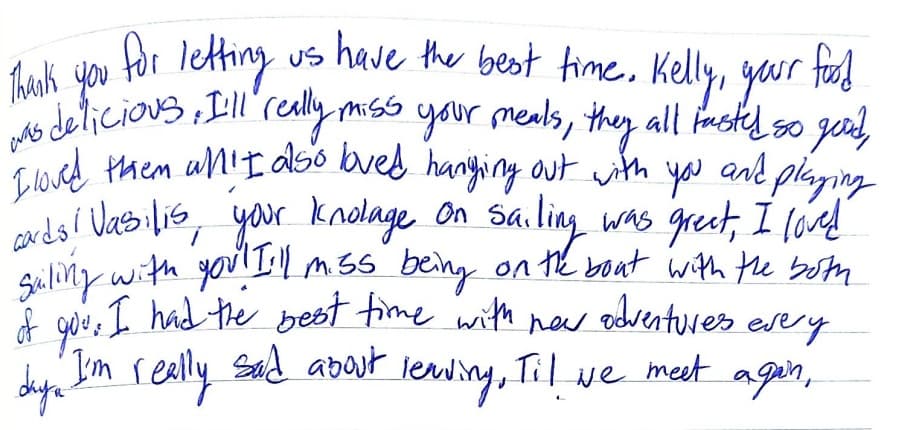 Thank you for letting us have the best time. Kelly, your food
was delicious, I'll really miss your meals, they all tasted so good,
I loved them all! I also loved hanging out with you and playing
cards! Vasilis, your knolage on sailing was great, I loved
sailing with you! I'll miss being on the boat with the both
of you. I had the best time with new adventures every
day. I'm really sad about leaving, Til we meet again,